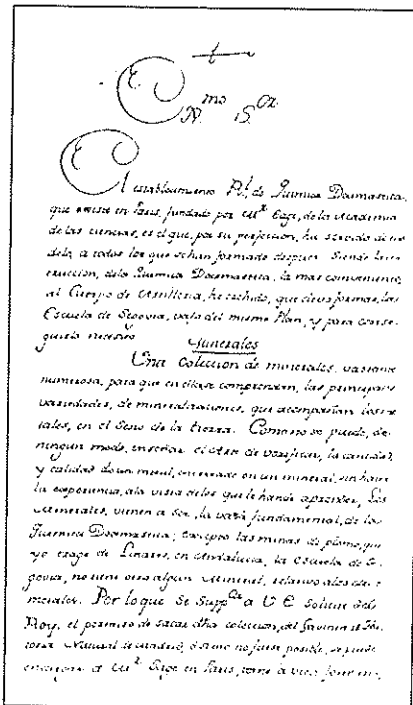 E.
N. mo S. or
El establecimiento Rl. de Quimica Docmastica,
que existe en Paris, fundado por Mr Sage, de la Academia
de las ciencias, es el que, por su perfeccion, ha servido de mo
delo, a todos los que se han formado despues. Siendo la ins
truccion, dela Quimica Docmastica, la mas conveniente,
al Cuerpo de Artilleria, he crehido, que devo formar, la
Escuela de Segovia, vajo del mismo Plan, y para conse
guirlo necesito
Minerales
Una coleccion de minerales, vastante
numerosa, para que en ella se comprendan, las principales
variedades, de mineralizaciones, que acompañan los me
tales, en el Seno de la tierra. Como no se puede, de
ningun modo, enseñar el Arte de verificar, la cantidad,
y calidad de un metal, encerrado en un mineral, sin hacer
la esperiencia, ala vista delos que le hande aprender, Los
Minerales, vienen a ser, la vasa fundamental, de la
Quimica Docmastica; excepto las minas de plomo, que
yo trage de Linares, en Andalucia, la escuela de Se
govia, no tiene otro algun Mineral, relativo ales de
metales. Por lo que Se Suppca a V E solicite del
Rey, el permiso de sacar dha coleccion, del Gavinete de His
toria Natural de Madrid, ó si no fuese posible, se puede
encargar a Mr Sage en Paris, como a vien